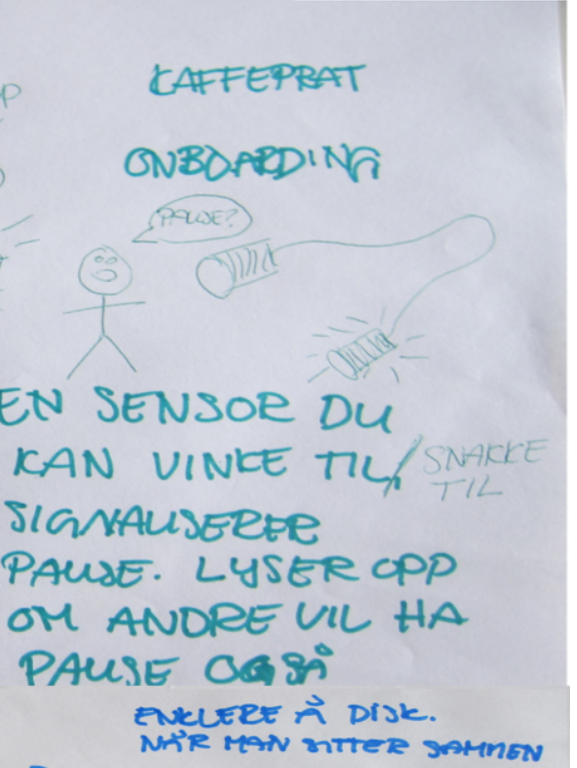 KAFFEPRAT
ONBOARDING
PAUSE?
EN SENSOR DU
KAN VINKE TIL/ SNAKKE
TIL
SIGNALISERER
PAUSE. LYSER OPP
OM ANDRE VIL HA
PAUSE OGSÅ
ENKLERE Å DISK.
NÅR MAN SITTER SAMMEN